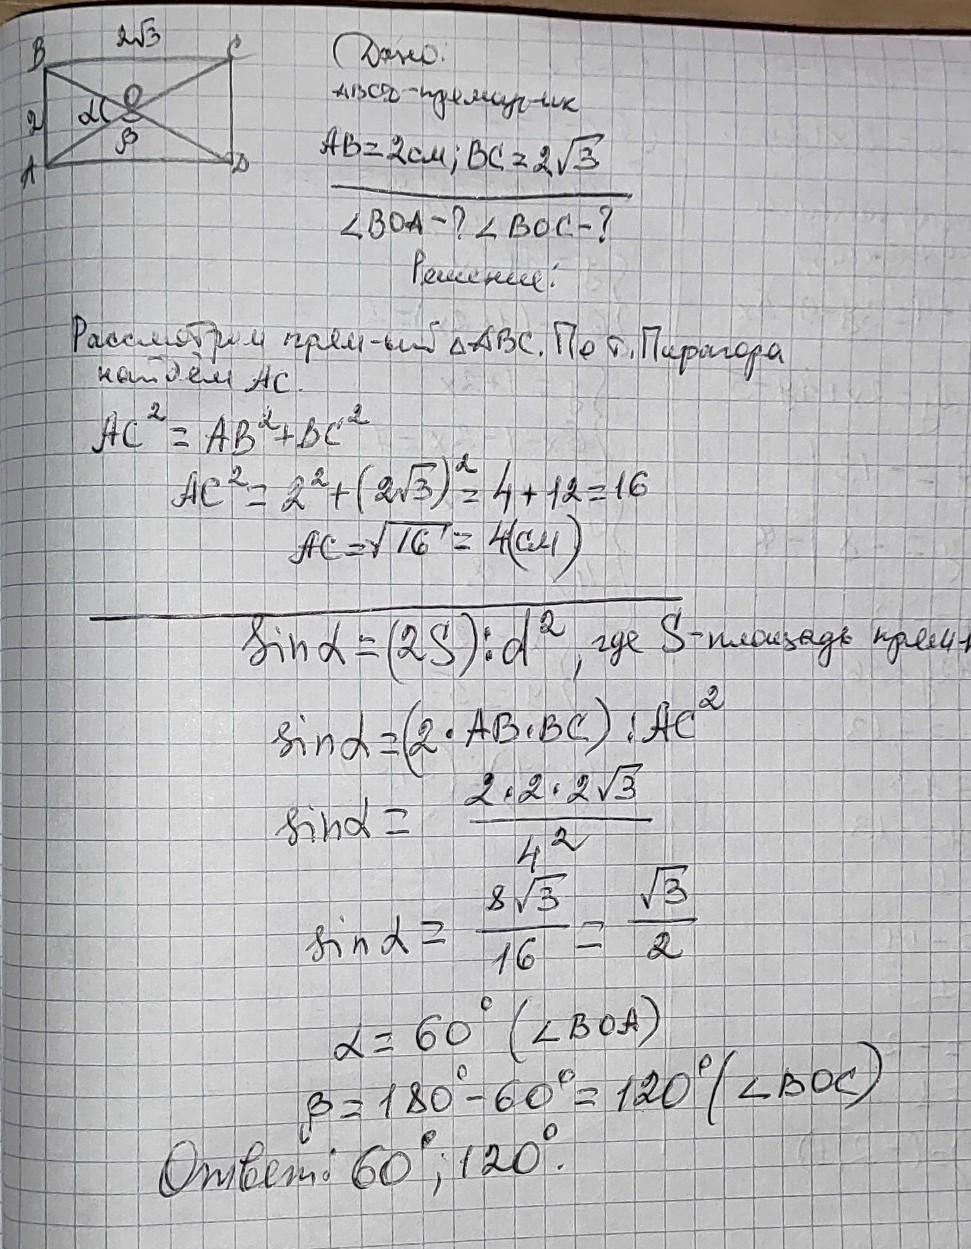 2√3
B
C
2
α
O
β
A
D
Дано:
ABCD-прямоуг-ик
AB=2см; BC=2√3
∠BOA-? ∠BOC-?
Решение:
Рассмотрим прям-ый △ABC. По т. Пифагора
найдём AC.
AC²=AB²+BC²
AC²=2²+(2√3)²=4+12=16
AC=√16=4(см)
sinα=(2S):d², где S-площадь прям-
sinα=(2·AB·BC):AC²
sinα= 2·2·2√3/4²
sinα= 8√3/16=√3/2
α=60° (∠BOA)
β=180°-60°=120° (∠BOC)
Ответ: 60°; 120°.